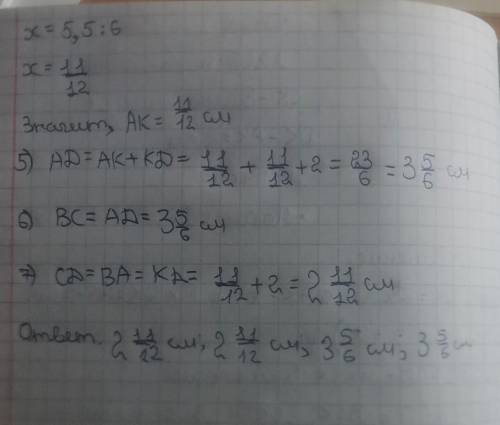 x = 5,5 : 6
x = 11/12
Значит, AK = 11/12 см
5) AD = AK + KD = 11/12 + 11/12 + 2 = 23/6 = 3 5/6 см
6) BC = AD = 3 5/6 см
7) CD = BA = KD = 11/12 + 2 = 2 11/12 см
Ответ. 2 11/12 см; 2 11/12 см; 3 5/6 см; 3 5/6 см